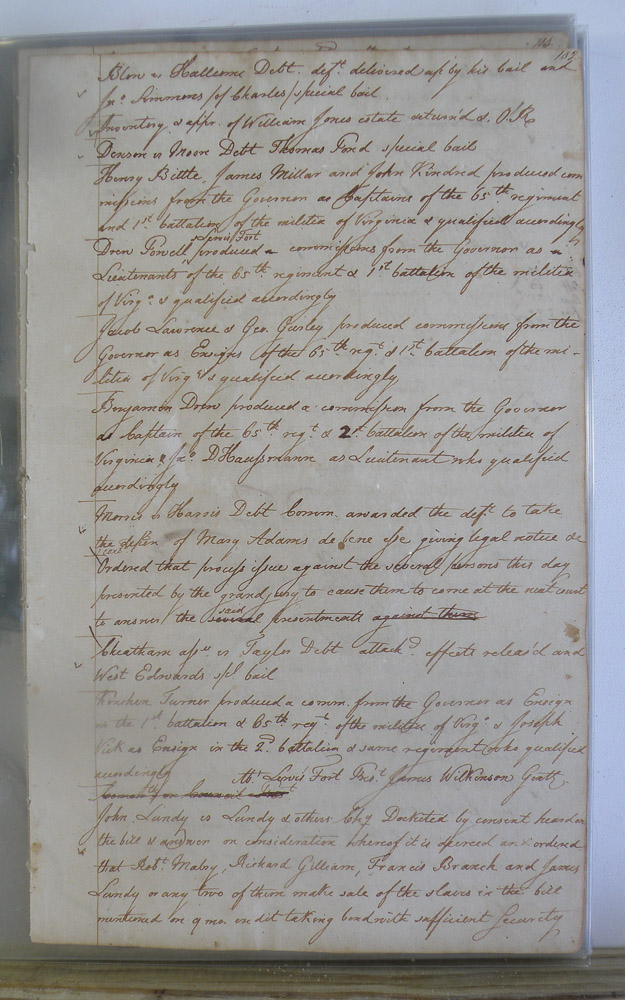 132
Blow vs Hallcome Debt. deft. delivered up by his bail and
Jno. Simmons (of Charles) special bail
Inventory & appr. of William Jones estate return'd & O.R
Denson vs Moore Debt Thomas Pond special bail
Henry Bittle, James Millar and John Kindred produced com
missions from the Governor as Captains of the 65th regiment
and 1st battalion of the militia of Virginia & qualified accordingly
Lewis Fort
Drew Powell produced a commissions from the Governor as a
Lieutenants of the 65th regiment & 1st battalion of the militia
of Virga. & qualified accordingly
Jacob Lawrence & Geo. Gurley produced commissions from the
Governor as Ensigns of the 65th regt. & 1st battalion of the mi-
litia of Virga & qualified accordingly
Benjamin Drew produced a commission from the Governor
as Captain of the 65th regt. & 2d battalion of the militia of
Virginia & Jno. D Haussmann as Lieutenant who qualified
accordingly
Morris vs Harris Debt Comm. awarded the deft to take
the depon of Mary Adams de bene esse giving legal notice &c
Ordered that process issue against the several persons this day
presented by the grand jury to cause them to come at the next court
said
to answer the several presentments against them
Cheatham assee vs Taylor Debt attachd. effects releas'd and
West Edwards spl bail
Kinchen Turner produced a comm. from the Governor as Ensign
in the 1st battalion & 65th regt of the militia of Virga. & Joseph
Vick as Ensign in the 2d. battalion & same regiment who qualified
accordingly
Abst Lewis Fort Prest. James Wilkinson Gent.
John Lundy vs Lundy & others Chy Docketed by consent heard on
the bill & answer on consideration whereof it is decreed and ordered
that Robt. Mabry, Richard Gilliam, Francis Branch and James
Lundy or any two of them make sale of the slaves in the bill
mentioned on 9 mo. credit taking bond with sufficient Security